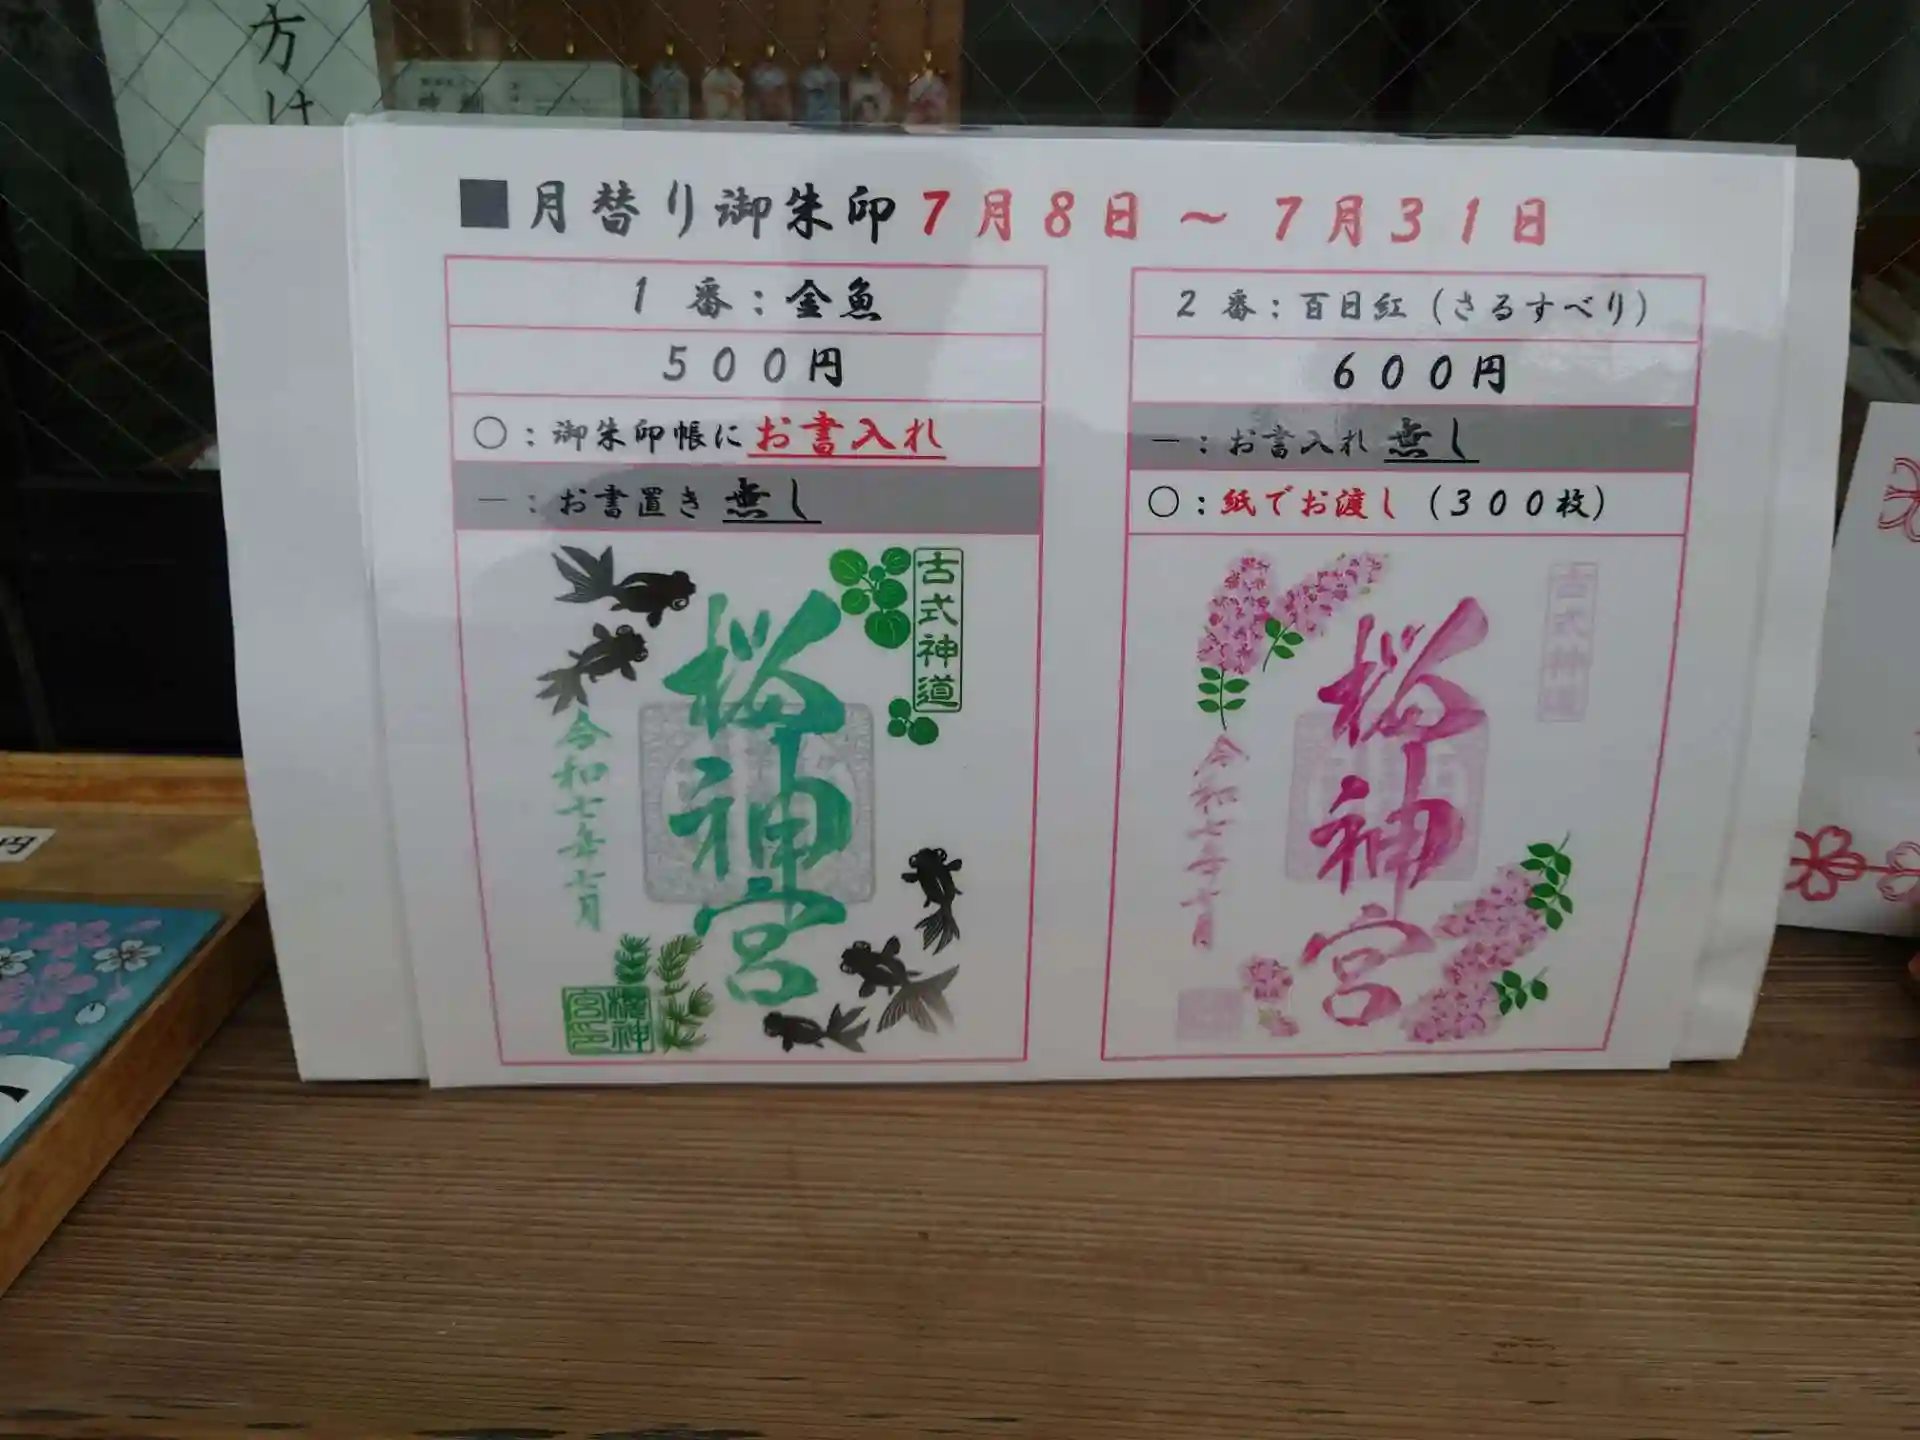 方は
■月替り御朱印7月8日～7月31日
1番：金魚
500円
○：御朱印帳にお書入れ
－：お書置き無し
古式神道
桜神宮
令和七年七月
桜神宮印
2番：百日紅（さるすべり）
600円
－：お書入れ無し
○：紙でお渡し（300枚）
古式神道
桜神宮
令和七年七月
円